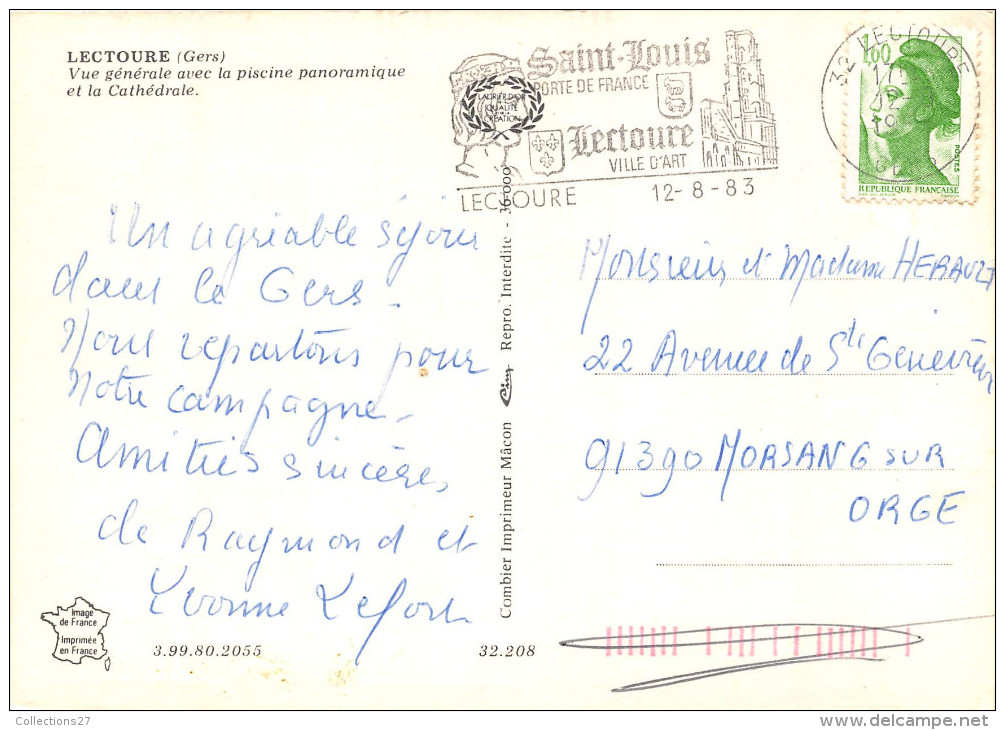 LECTOURE (Gers)
Vue générale avec la piscine panoramique
et la Cathédrale.
Saint-Louis
PORTE DE FRANCE
LAURIER D'OR
QUALITÉ
CRÉATION
Lectoure
VILLE D'ART
LECTOURE 12-8-83
32 LECTOURE
GERS
1,00
POSTES
REPUBLIQUE FRANÇAISE
Un agréable séjour
dans le Gers.
Nous repartons pour
notre campagne.
Amitiés sincères
de Raymond et
Yvonne Lefort
Combier Imprimeur Mâcon Cim Repro. Interdite - 36-000
Monsieur et Madame HERAULT
22 Avenue de Ste Geneviève
91390 MORSANG SUR
ORGE
Image
de France
Imprimée
en France
3.99.80.2055
32.208
Collections27
delcampe.net